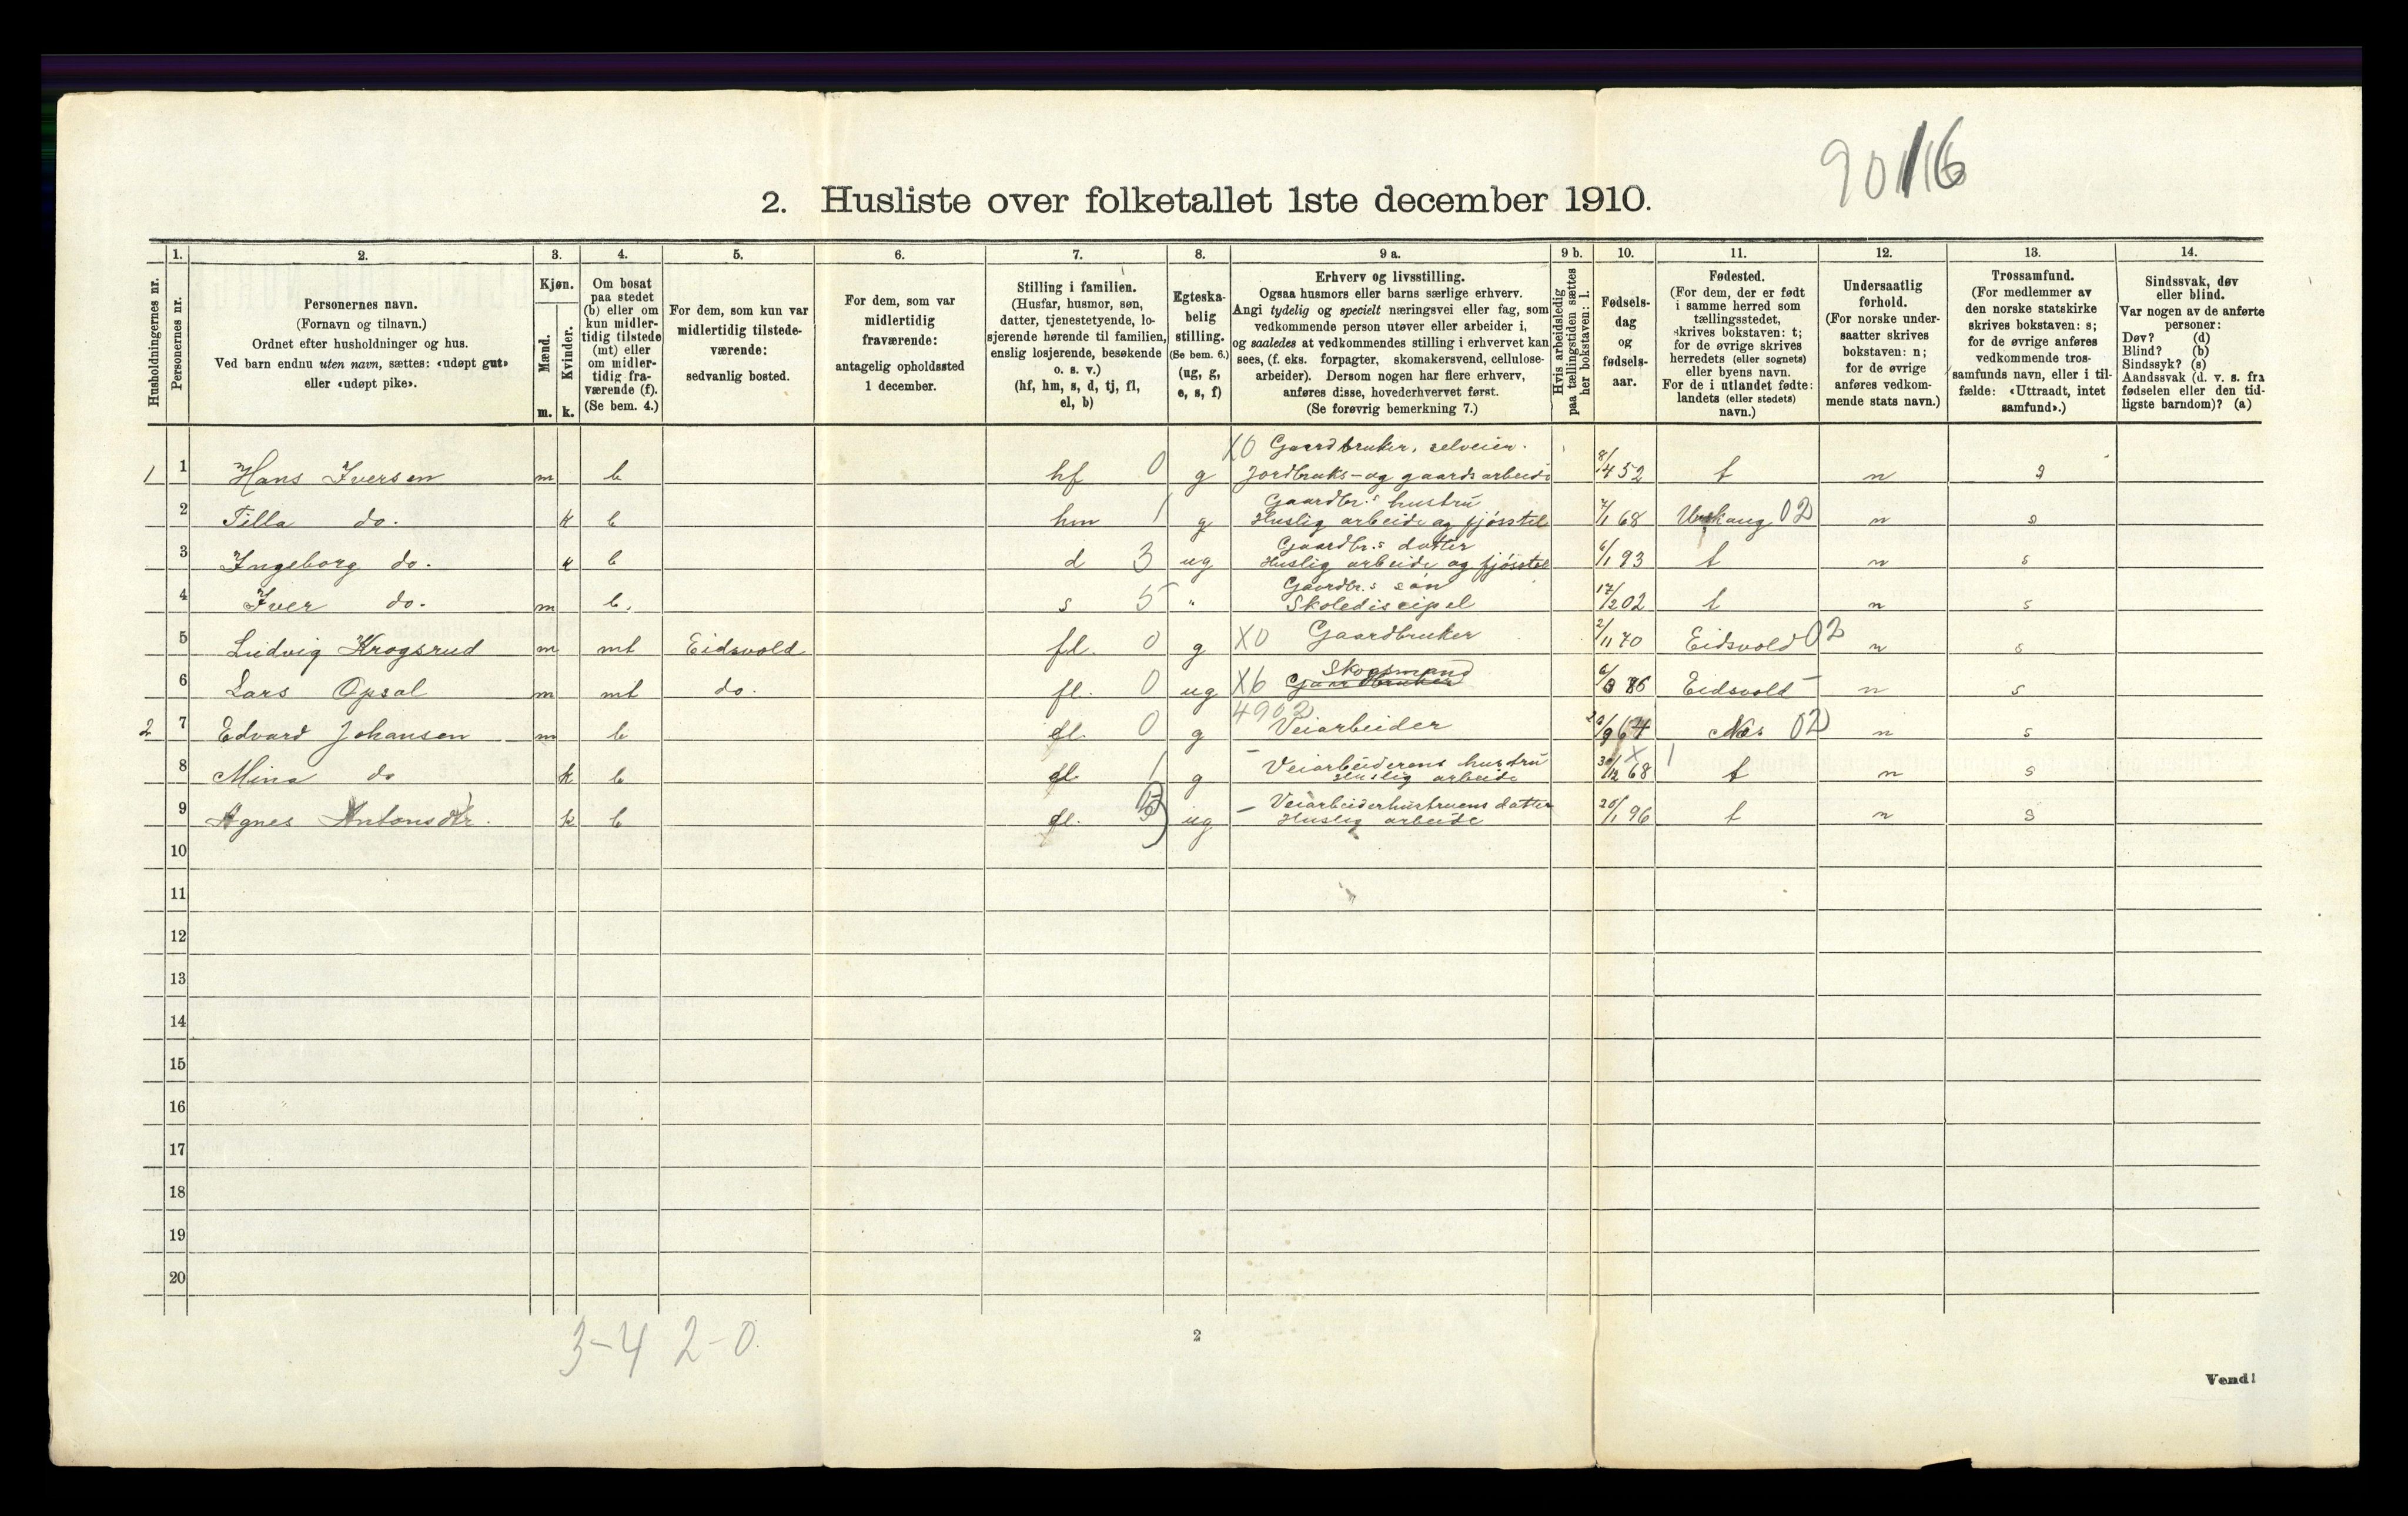 90 116
2. Husliste over folketallet 1ste december 1910.
Husholdningernes nr.
1. Personernes nr.
2. Personernes navn.
(Fornavn og tilnavn.)
Ordnet efter husholdninger og hus.
Ved barn endnu uten navn, sættes: «udøpt gut»
eller «udøpt pike».
3. Kjøn.
Mænd. m.
Kvinder. k.
4. Om bosat
paa stedet
(b) eller om
kun midler-
tidig tilstede
(mt) eller
om midler-
tidig fra-
værende (f).
(Se bem. 4.)
5. For dem, som kun var
midlertidig tilstede-
værende:
sedvanlig bosted.
6. For dem, som var
midlertidig
fraværende:
antagelig opholdssted
1 december.
7. Stilling i familien.
(Husfar, husmor, søn,
datter, tjenestetyende, lo-
sjerende hørende til familien,
enslig losjerende, besøkende
o. s. v.)
(hf, hm, s, d, tj, fl,
el, b)
8. Egteska-
belig
stilling.
(Se bem. 6.)
(ug, g,
e, s, f)
9 a. Erhverv og livsstilling.
Ogsaa husmors eller barns særlige erhverv.
Angi tydelig og specielt næringsvei eller fag, som
vedkommende person utøver eller arbeider i,
og saaledes at vedkommendes stilling i erhvervet kan
sees, (f. eks. forpagter, skomakersvend, cellulose-
arbeider). Dersom nogen har flere erhverv,
anføres disse, hovederhvervet først.
(Se forøvrig bemerkning 7.)
9 b. Hvis arbeidsledig
paa tællingstiden sættes
her bokstaven: l.
10. Fødsels-
dag
og
fødsels-
aar.
11. Fødested.
(For dem, der er født
i samme herred som
tællingsstedet,
skrives bokstaven: t;
for de øvrige skrives
herredets (eller sognets)
eller byens navn.
For de i utlandet fødte:
landets (eller stedets)
navn.)
12. Undersaatlig
forhold.
(For norske under-
saatter skrives
bokstaven: n;
for de øvrige
anføres vedkom-
mende stats navn.)
13. Trossamfund.
(For medlemmer av
den norske statskirke
skrives bokstaven: s;
for de øvrige anføres
vedkommende tros-
samfunds navn, eller i til-
fælde: «Uttraadt, intet
samfund».)
14. Sindssvak, døv
eller blind.
Var nogen av de anførte
personer:
Døv? (d)
Blind? (b)
Sindssyk? (s)
Aandssvak (d. v. s. fra
fødselen eller den tid-
ligste barndom)? (a)
X0 Gaardbruker, selveier.
1 1 Hans Iversen m b hf 0 g Jordbruks- og gaardsarbeide 8/4 52 t n s
Gaardbr.s hustru
2 Tilla do. k b hm 1 g Huslig arbeide og fjøsstel 7/1 68 Urskaug 02 n s
Gaardbr.s datter
3 Ingeborg do. k b d 3 ug Huslig arbeide og fjøsstel 6/1 93 t n s
Gaardbr.s søn
4 Iver do. m b. s 5 " Skolediscipel 17/2 02 t n s
5 Ludvig Krogsrud m mt Eidsvold fl. 0 g X0 Gaardbruker 2/11 70 Eidsvold 02 n s
Skogsmand
6 Lars Opsal m mt do. fl. 0 ug X6 Gaardbruker 6/3 86 Eidsvold - n s
4902
2 7 Edvard Johansen m b fl. 0 g Veiarbeider 20/9 64 Nes 02 n s
- Veiarbeiderens hustru
8 Mina do k b fl. 1 g Huslig arbeide 30/12 68 t n s
- Veiarbeiderhustruens datter
9 Agnes Antonsdtr. k b fl. ug Huslig arbeide 20/1 96 t n s
10
11
12
13
14
15
16
17
18
19
20
3-4 2-0.
2
Vend!